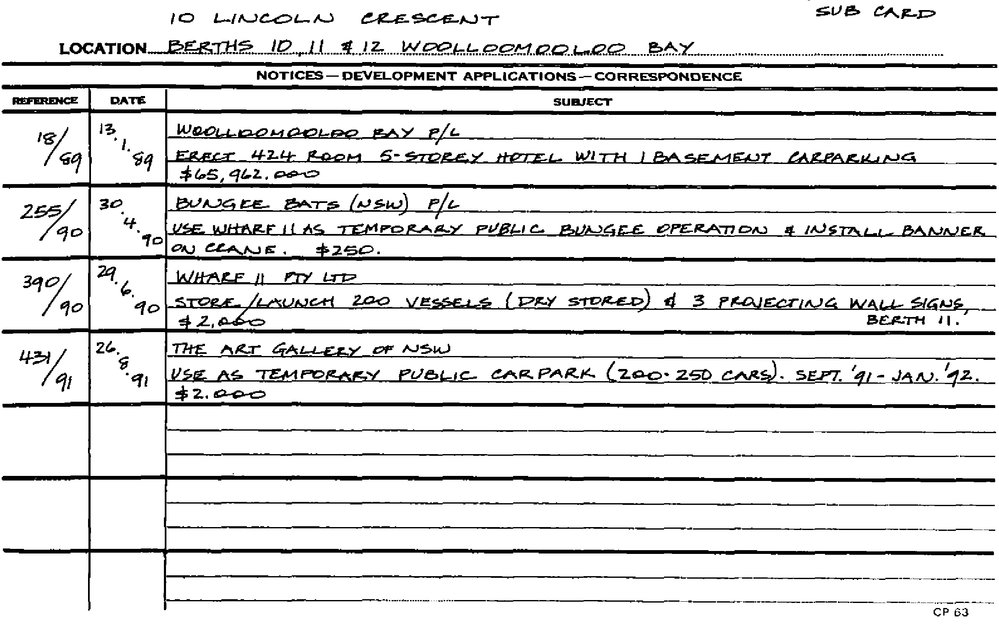 10 LINCOLN CRESCENT
SUB CARD
LOCATION BERTHS 10, 11 & 12 WOOLLOOMOOLOO BAY
NOTICES—DEVELOPMENT APPLICATIONS—CORRESPONDENCE
REFERENCE DATE SUBJECT
18/89 13.1.89 WOOLLOOMOOLOO BAY P/L
ERECT 424 ROOM 5-STOREY HOTEL WITH 1 BASEMENT CARPARKING
$65,962.000
255/90 30.4.90 BUNGEE BATS (NSW) P/L
USE WHARF 11 AS TEMPORARY PUBLIC BUNGEE OPERATION & INSTALL BANNER
ON CRANE. $250.
390/90 29.6.90 WHARF 11 PTY LTD
STORE/LAUNCH 200 VESSELS (DRY STORED) & 3 PROJECTING WALL SIGNS,
$2,000 BERTH 11.
431/91 26.8.91 THE ART GALLERY OF NSW
USE AS TEMPORARY PUBLIC CARPARK (200-250 CARS). SEPT. '91 - JAN. '92.
$2.000
CP 63